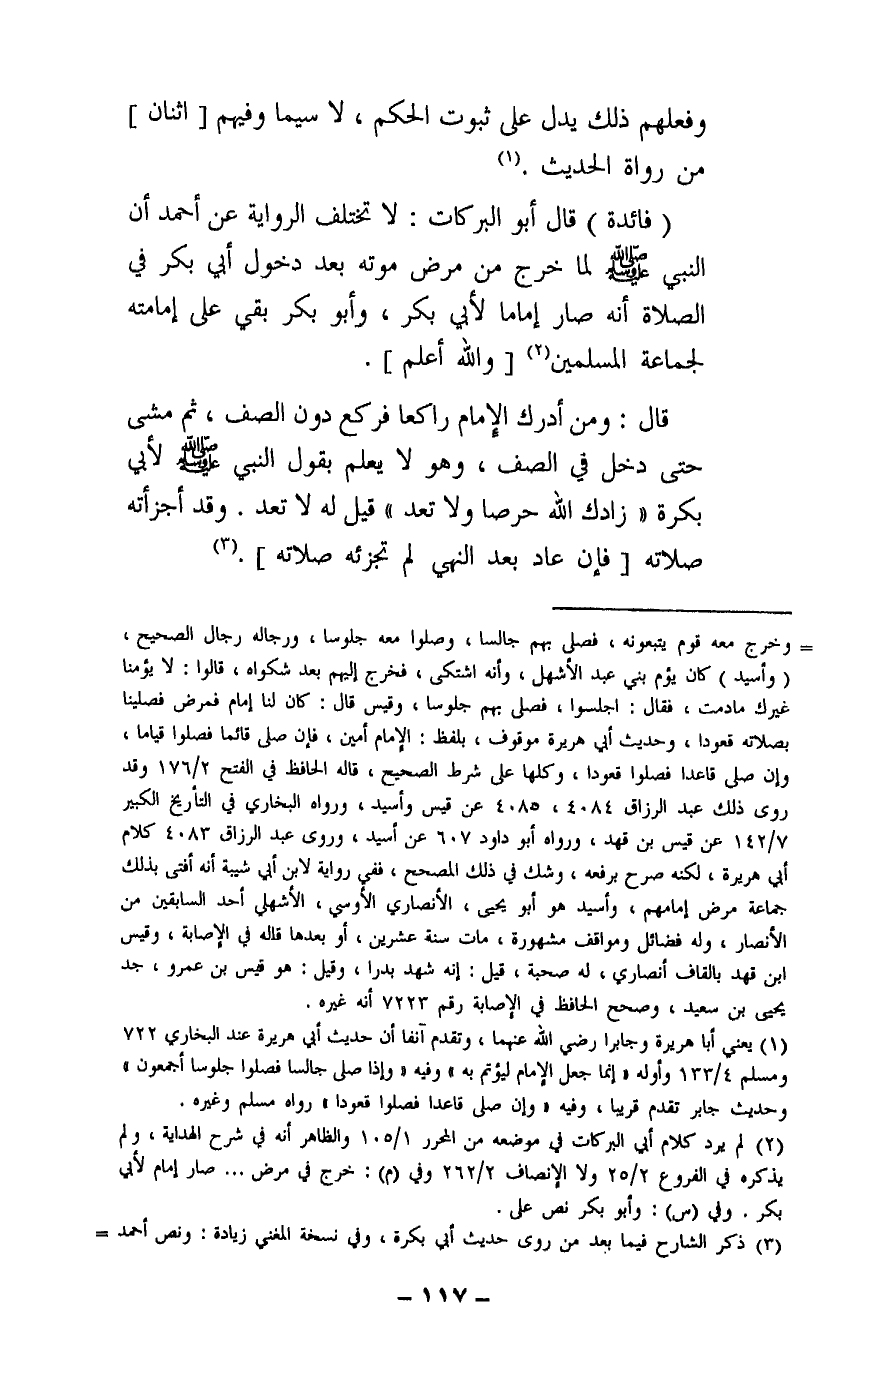 وفعلهم ذلك يدل على ثبوت الحكم ، لا سيما وفيهم [ اثنان ]
من رواة الحديث .(١)
( فائدة ) قال أبو البركات : لا تختلف الرواية عن أحمد أن
النبي ﷺ لما خرج من مرض موته بعد دخول أبي بكر في
الصلاة أنه صار إماما لأبي بكر ، وأبو بكر بقي على إمامته
لجماعة المسلمين(٢) [ والله أعلم ] .
قال : ومن أدرك الإمام راكعا فركع دون الصف ، ثم مشى
حتى دخل في الصف ، وهو لا يعلم بقول النبي ﷺ لأبي
بكرة « زادك الله حرصا ولا تعد » قيل له لا تعد . وقد أجزأته
صلاته [ فإن عاد بعد النهي لم تجزئه صلاته ] .(٣)
= وخرج معه قوم يتبعونه ، فصلى بهم جالسا ، وصلوا معه جلوسا ، ورجاله رجال الصحيح ،
( وأسيد ) كان يؤم بني عبد الأشهل ، وأنه اشتكى ، فخرج إليهم بعد شكواه ، قالوا : لا يؤمنا
غيرك مادمت ، فقال : اجلسوا ، فصلى بهم جلوسا ، وقيس قال : كان لنا إمام فمرض فصلينا
بصلاته قعودا ، وحديث أبي هريرة موقوف ، بلفظ : الإمام أمين ، فإن صلى قائما فصلوا قياما ،
وإن صلى قاعدا فصلوا قعودا ، وكلها على شرط الصحيح ، قاله الحافظ في الفتح ١٧٦/٢ وقد
روى ذلك عبد الرزاق ٤٠٨٤ ، ٤٠٨٥ عن قيس وأسيد ، ورواه البخاري في التأريخ الكبير
١٤٢/٧ عن قيس بن قهد ، ورواه أبو داود ٦٠٧ عن أسيد ، وروى عبد الرزاق ٤٠٨٣ كلام
أبي هريرة ، لكنه صرح برفعه ، وشك في ذلك المصحح ، ففي رواية لابن أبي شيبة أنه أفتى بذلك
جماعة مرض إمامهم ، وأسيد هو أبو يحيى ، الأنصاري الأوسي ، الأشهلي أحد السابقين من
الأنصار ، وله فضائل ومواقف مشهورة ، مات سنة عشرين ، أو بعدها قاله في الإصابة ، وقيس
ابن قهد بالقاف أنصاري ، له صحبة ، قيل : إنه شهد بدرا ، وقيل : هو قيس بن عمرو ، جد
يحيى بن سعيد ، وصحح الحافظ في الإصابة رقم ٧٢٢٣ أنه غيره .
(١) يعني أبا هريرة وجابرا رضي الله عنهما ، وتقدم آنفا أن حديث أبي هريرة عند البخاري ٧٢٢
ومسلم ١٣٣/٤ وأوله « إنما جعل الإمام ليؤتم به » وفيه « وإذا صلى جالسا فصلوا جلوسا أجمعون »
وحديث جابر تقدم قريبا ، وفيه « وإن صلى قاعدا فصلوا قعودا » رواه مسلم وغيره .
(٢) لم يرد كلام أبي البركات في موضعه من المحرر ١٠٥/١ والظاهر أنه في شرح الهداية ، ولم
يذكره في الفروع ٢٥/٢ ولا الإنصاف ٢٦٢/٢ وفي (م) : خرج في مرض ... صار إمام لأبي
بكر . وفي (س) : وأبو بكر نص على .
(٣) ذكر الشارح فيما بعد من روى حديث أبي بكرة ، وفي نسخة المغني زيادة : ونص أحمد =
- ١١٧ -